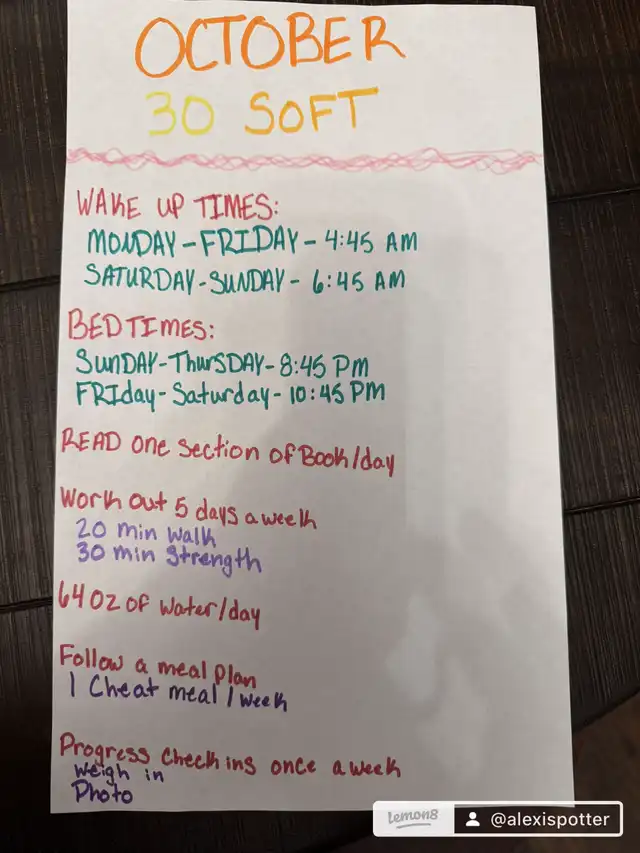 OCTOBER
30 SOFT
WAKE UP TIMES:
MONDAY-FRIDAY-4:45 AM
SATURDAY-SUNDAY- 6:45 AM
BEDTIMES:
SUNDAY-ThurSDAY-8:45 Pm
FRIday-Saturday-10:45 PM
READ one section of Book/day
Work out 5 days a week
20 min walk
30 min Strength
64 oz of water/day
Follow a meal plan
1 Cheat meal/week
Progress Check ins once a week
weigh in
Photo
lemon8 @alexispotter